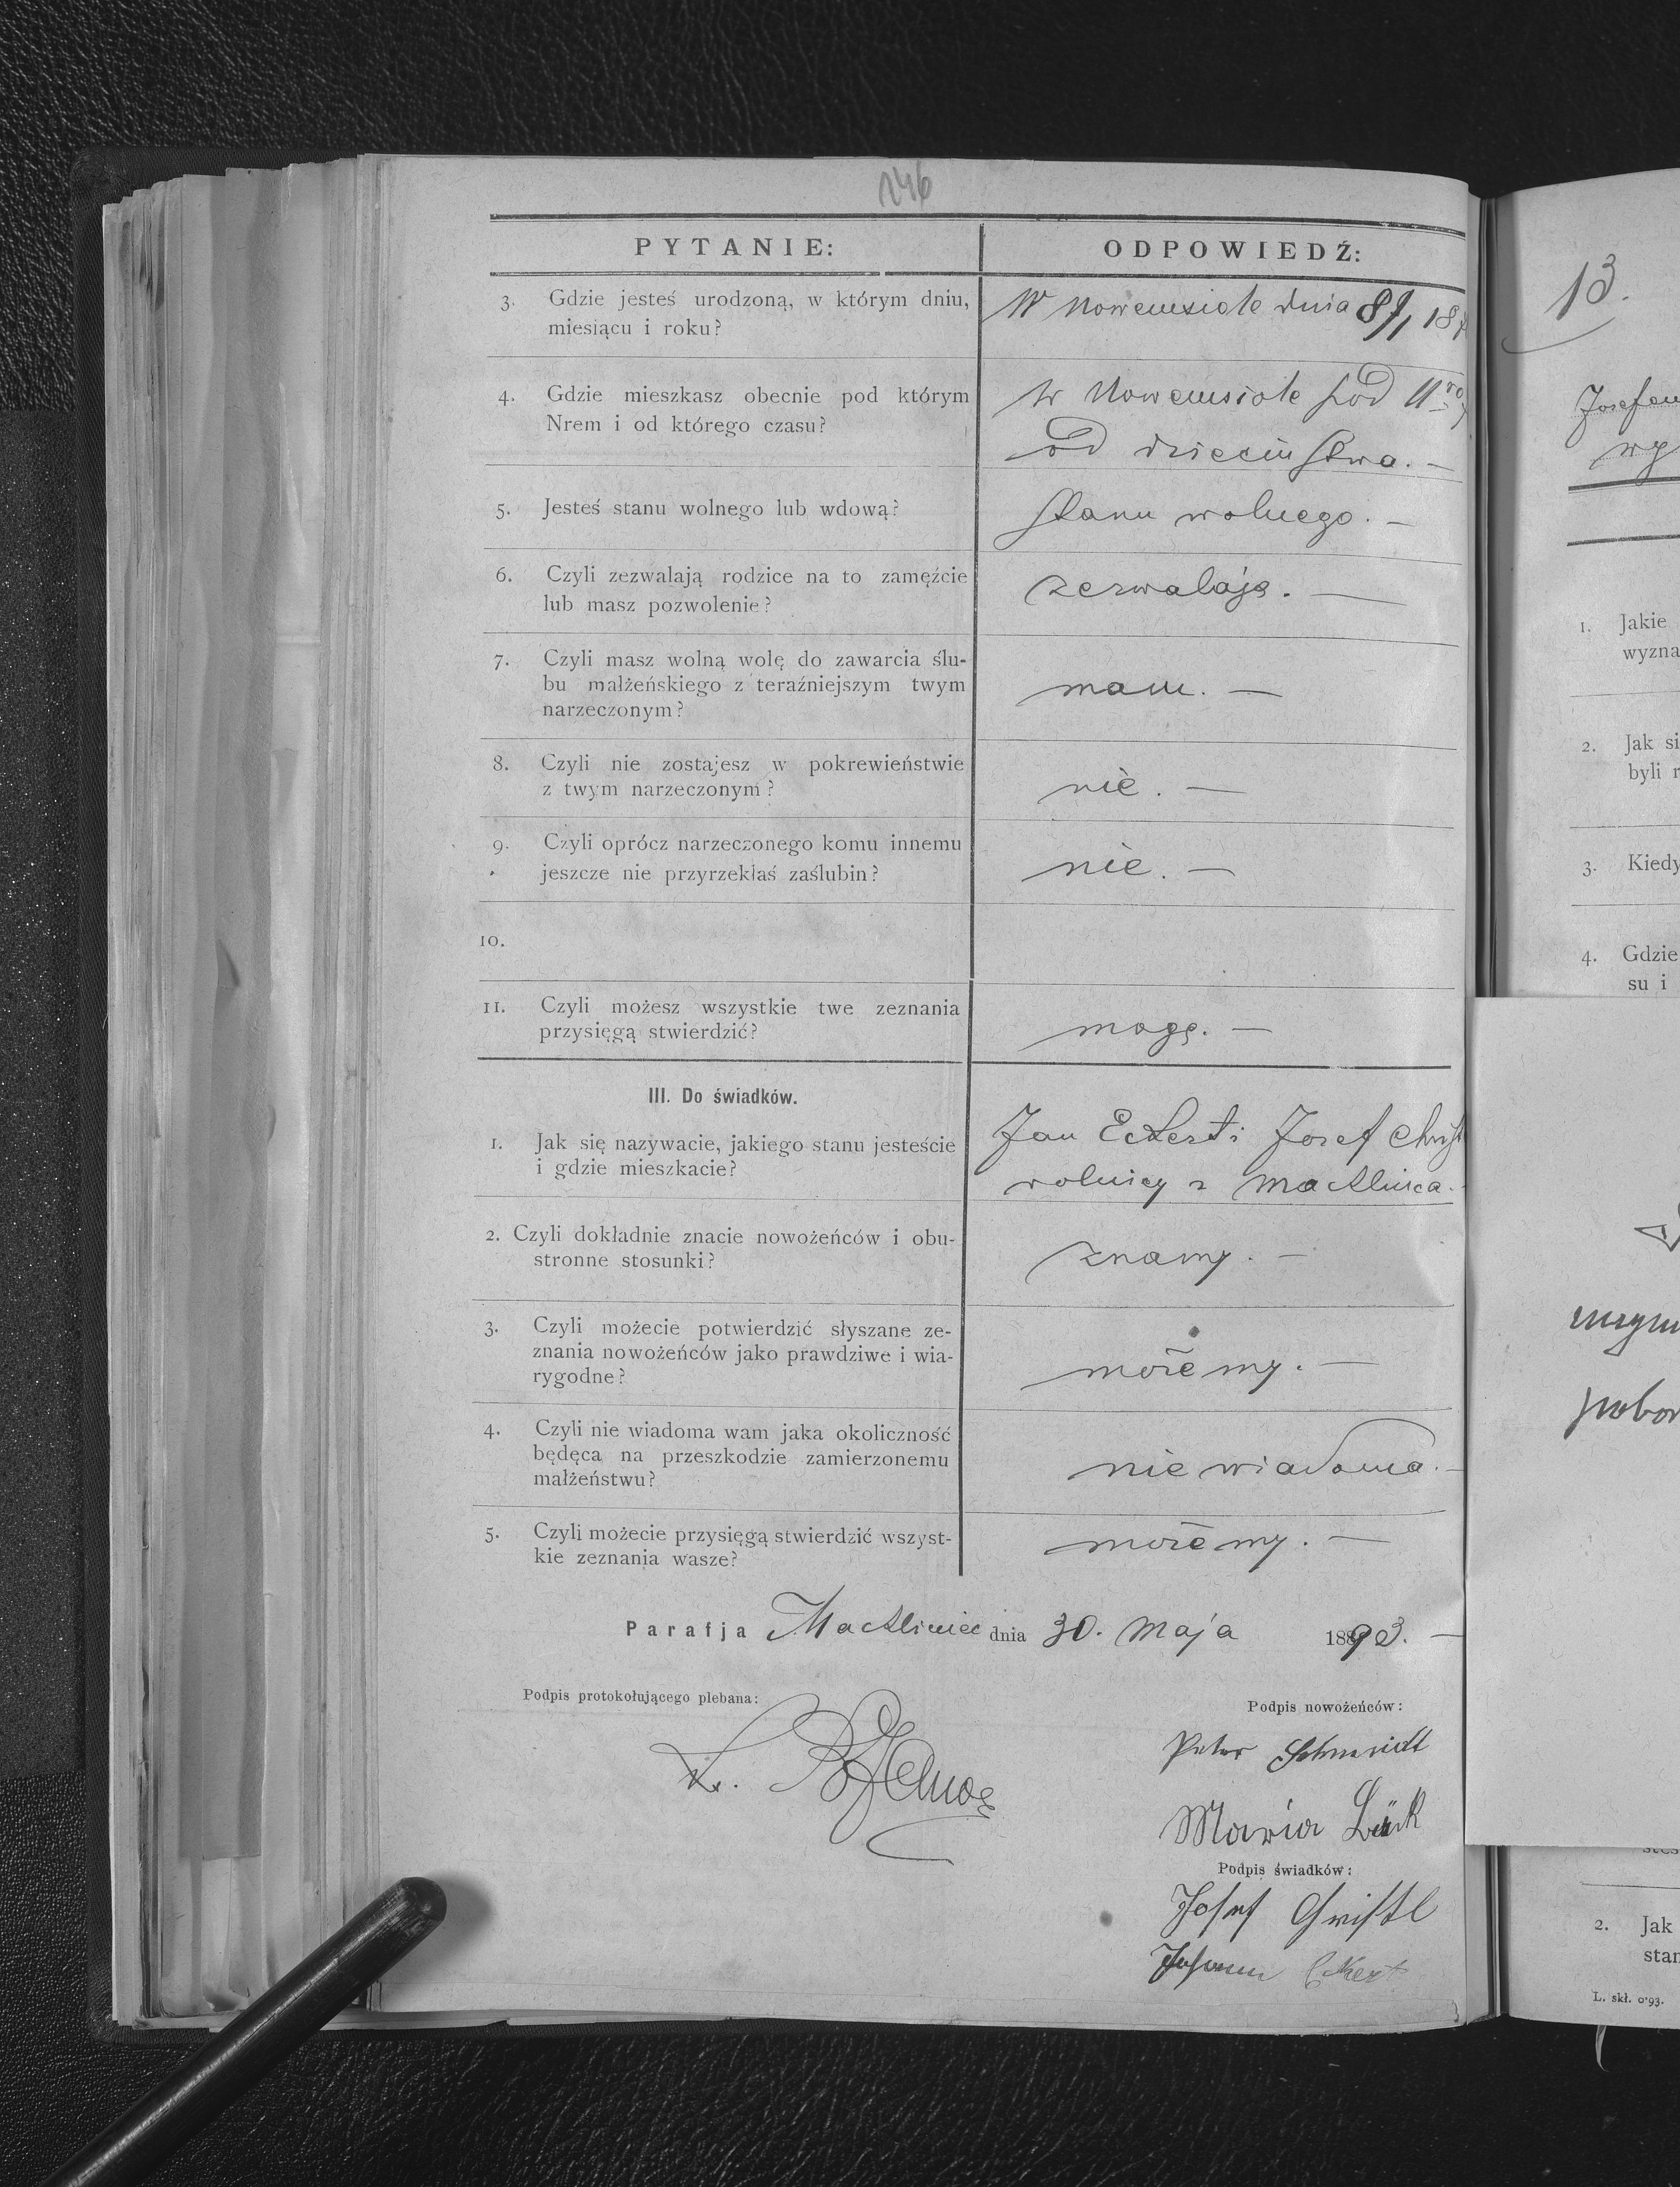 246
PYTANIE:
ODPOWIEDŹ:
3. Gdzie jesteś urodzoną, w którym dniu,
miesiącu i roku?
W Nowemsiole dnia 8/1 18
4. Gdzie mieszkasz obecnie pod którym
Nrem i od którego czasu?
w Nowemsiole pod
od dzieciństwa. —
5. Jesteś stanu wolnego lub wdową?
Stanu wolnego. —
6. Czyli zezwalają rodzice na to zamęźcie
lub masz pozwolenie?
zezwalają. —
7. Czyli masz wolną wolę do zawarcia ślu-
bu małżeńskiego z teraźniejszym twym
narzeczonym?
mam. —
8. Czyli nie zostajesz w pokrewieństwie
z twym narzeczonym?
nie. —
9. Czyli oprócz narzeczonego komu innemu
jeszcze nie przyrzekłaś zaślubin?
nie. —
10.
11. Czyli możesz wszystkie twe zeznania
przysięgą stwierdzić?
mogę. —
III. Do świadków.
1. Jak się nazywacie, jakiego stanu jesteście
i gdzie mieszkacie?
Jan Eckert i Josef Christ
rolnicy z Machlińca.
2. Czyli dokładnie znacie nowożeńców i obu-
stronne stosunki?
znamy. —
3. Czyli możecie potwierdzić słyszane ze-
znania nowożeńców jako prawdziwe i wia-
rygodne?
możemy. —
4. Czyli nie wiadoma wam jaka okoliczność
będęca na przeszkodzie zamierzonemu
małżeństwu?
nie wiadoma. —
5. Czyli możecie przysięgą stwierdzić wszyst-
kie zeznania wasze?
możemy. —
Parafja Machliniec dnia 30. Maja 1893. —
Podpis protokołującego plebana:
Podpis nowożeńców:
Peter Schmidt
Maria Lük
Podpis świadków:
Josef Christl
Johann Eckert
13.
Josefem
1. Jakie
wyzna
2. Jak si
byli r
3. Kiedy
4. Gdzie
su i
2. Jak
stan
L. skł. 0·93.